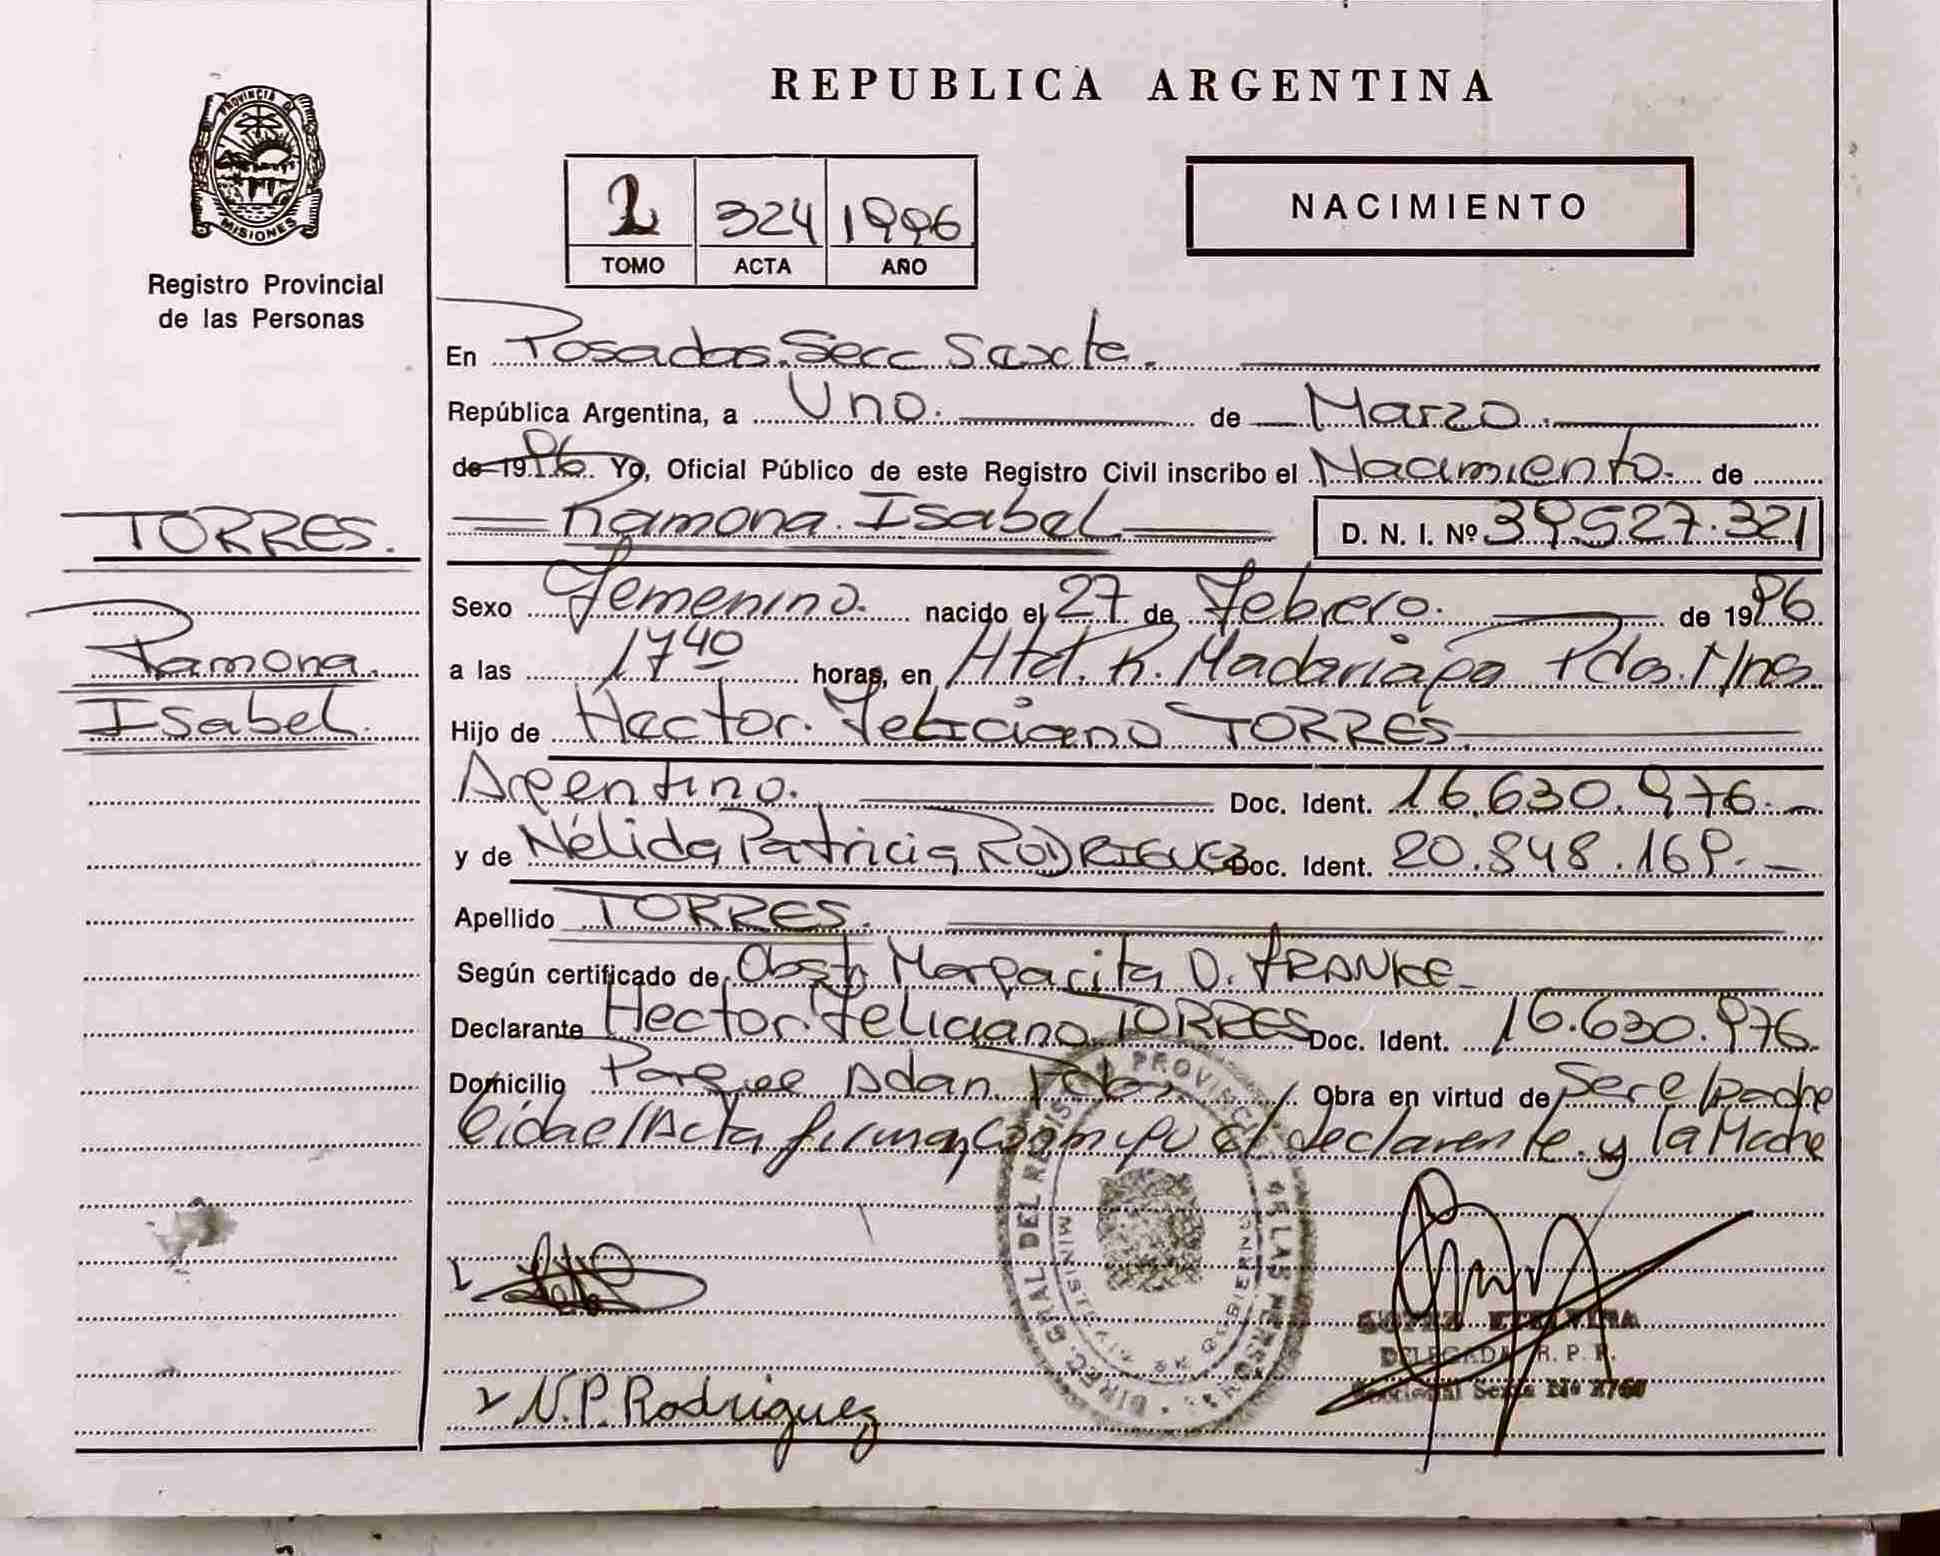 PROVINCIA D
MISIONES
Registro Provincial
de las Personas
REPUBLICA ARGENTINA
2 324 1996
TOMO ACTA AÑO
NACIMIENTO
En Posadas. Secc Sexta.
República Argentina, a Uno. de Marzo.
de 1996. Yo, Oficial Público de este Registro Civil inscribo el Nacimiento. de
TORRES.
Ramona. Isabel D. N. I. Nº 39.527.321
Sexo Femenino. nacido el 27 de Febrero. de 1996
Ramona.
Isabel.
a las 17 40 horas, en Htal. R. Madariaga Pdas. Mnes
Hijo de Hector. Feliciano TORRES.
Argentino. Doc. Ident. 16.630.976.
y de Nélida Patricia RODRIGUEZ Doc. Ident. 20.848.169.
Apellido TORRES.
Según certificado de Obst. Margarita D. FRANKE
Declarante Hector Feliciano TORRES Doc. Ident. 16.630.976.
Domicilio Parque Adan Obra en virtud de Ser el padre
Leida el Acta firman el declarante y la Madre
DIREC. GRAL DEL REGIST PROVINCIAL DE LAS PERSONAS
DELEGADA R. P. P.
N.P. Rodriguez